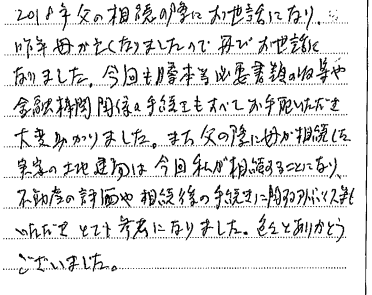 2018年父の相続の際にお世話になり、
昨年母が亡くなりましたので再びお世話に
なりました。今回も謄本等必要書類の収集や
金融機関関係の手続きもすべてお手配いただき
大変助かりました。また父の際に母が相続した
実家の土地建物は今回私が相続することになり、
不動産の評価や相続後の手続きに関するアドバイス等も
いただき とても参考になりました。色々とありがとう
ございました。